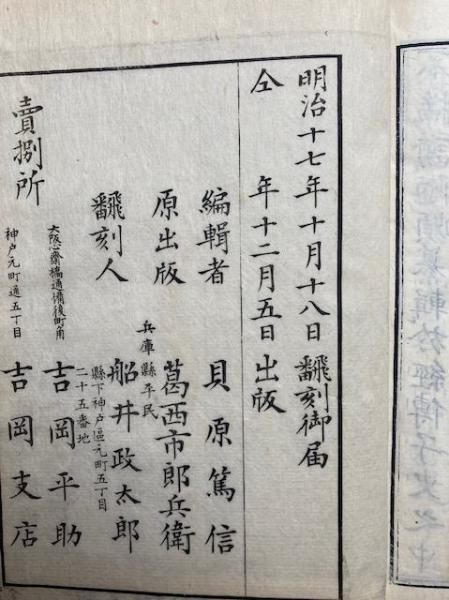 明治十七年十月十八日 飜刻御届
仝 年十二月五日 出版
編輯者 貝原篤信
原出版 葛西市郎兵衛
飜刻人 兵庫縣平民 船井政太郎
縣下神戸區元町五丁目
二十五番地
賣捌所
大阪心齋橋通備後町角 吉岡平助
神戸元町通五丁目 吉岡支店